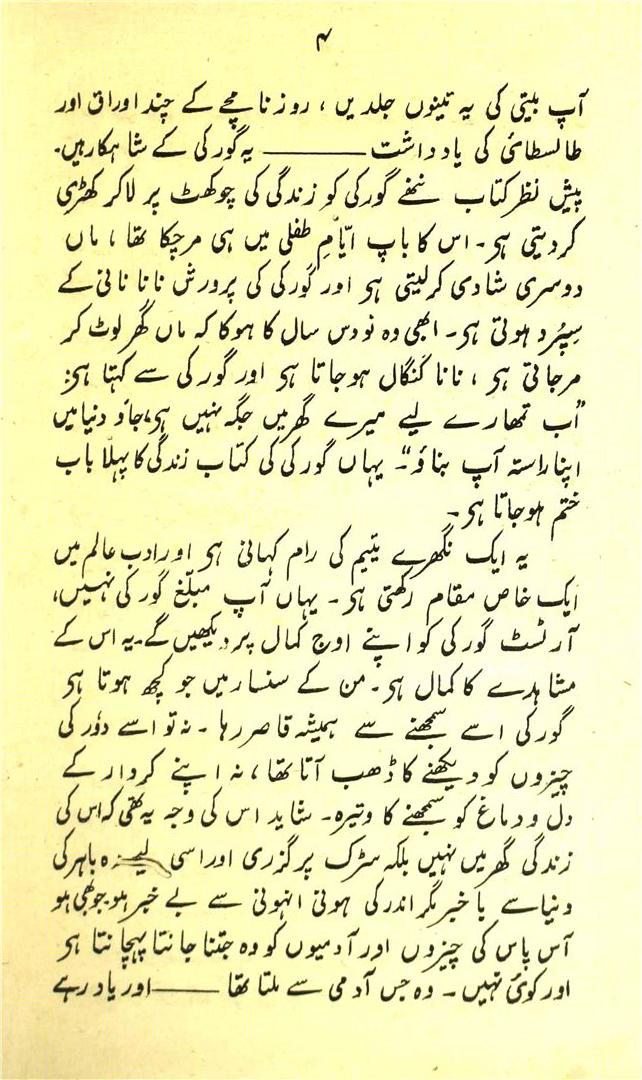 ۴
آپ بیتی کی یہ تینوں جلدیں ، روزنامچے کے چند اوراق اور
طالسطائی کی یادداشت ــــــــ یہ گورکی کے شاہکار ہیں۔
پیش نظر کتاب ننھے گورکی کو زندگی کی چوکھٹ پر لاکر کھڑی
کردیتی ہی۔ اس کا باپ ایّامِ طفلی میں ہی مرچکا تھا ، ماں
دوسری شادی کرلیتی ہی اور گورکی کی پرورش نانا نانی کے
سپُرد ہوتی ہی۔ ابھی وہ نو دس سال کا ہوگا کہ ماں گھر لوٹ کر
مرجاتی ہی ، نانا کنگال ہوجاتا ہی اور گورکی سے کہتا ہی:
”اب تمھارے لیے میرے گھر میں جگہ نہیں ہی، جاؤ دنیا میں
اپنا راستہ آپ بناؤ“۔ یہاں گورکی کی کتاب زندگی کا پہلا باب
ختم ہوجاتا ہی۔
یہ ایک نگھرے یتیم کی رام کہانی ہی اور ادب عالم میں
ایک خاص مقام رکھتی ہی۔ یہاں آپ مبلّغ گورکی نہیں،
آرٹسٹ گورکی کو اپنے اوج کمال پر دیکھیں گے۔ یہ اس کے
مشاہدے کا کمال ہی۔ من کے سنسار میں جو کچھ ہوتا ہی
گورکی اسے سمجھنے سے ہمیشہ قاصر رہا ۔ نہ تو اسے دوٗر کی
چیزوں کو دیکھنے کا ڈھب آتا تھا ، نہ اپنے کردار کے
دل و دماغ کو سمجھنے کا وتیرہ۔ شاید اس کی وجہ یہ تھی کہ اس کی
زندگی گھر میں نہیں بلکہ سڑک پر گزری اور اسی لیے وہ باہر کی
دنیا سے باخبر مگر اندر کی ہونی انہونی سے بے خبر ہو۔ جو بھی ہو
آس پاس کی چیزوں اور آدمیوں کو وہ جتنا جانتا پہچانتا ہی
اور کوئی نہیں۔ وہ جس آدمی سے ملتا تھا ــــــــ اور یاد رہے